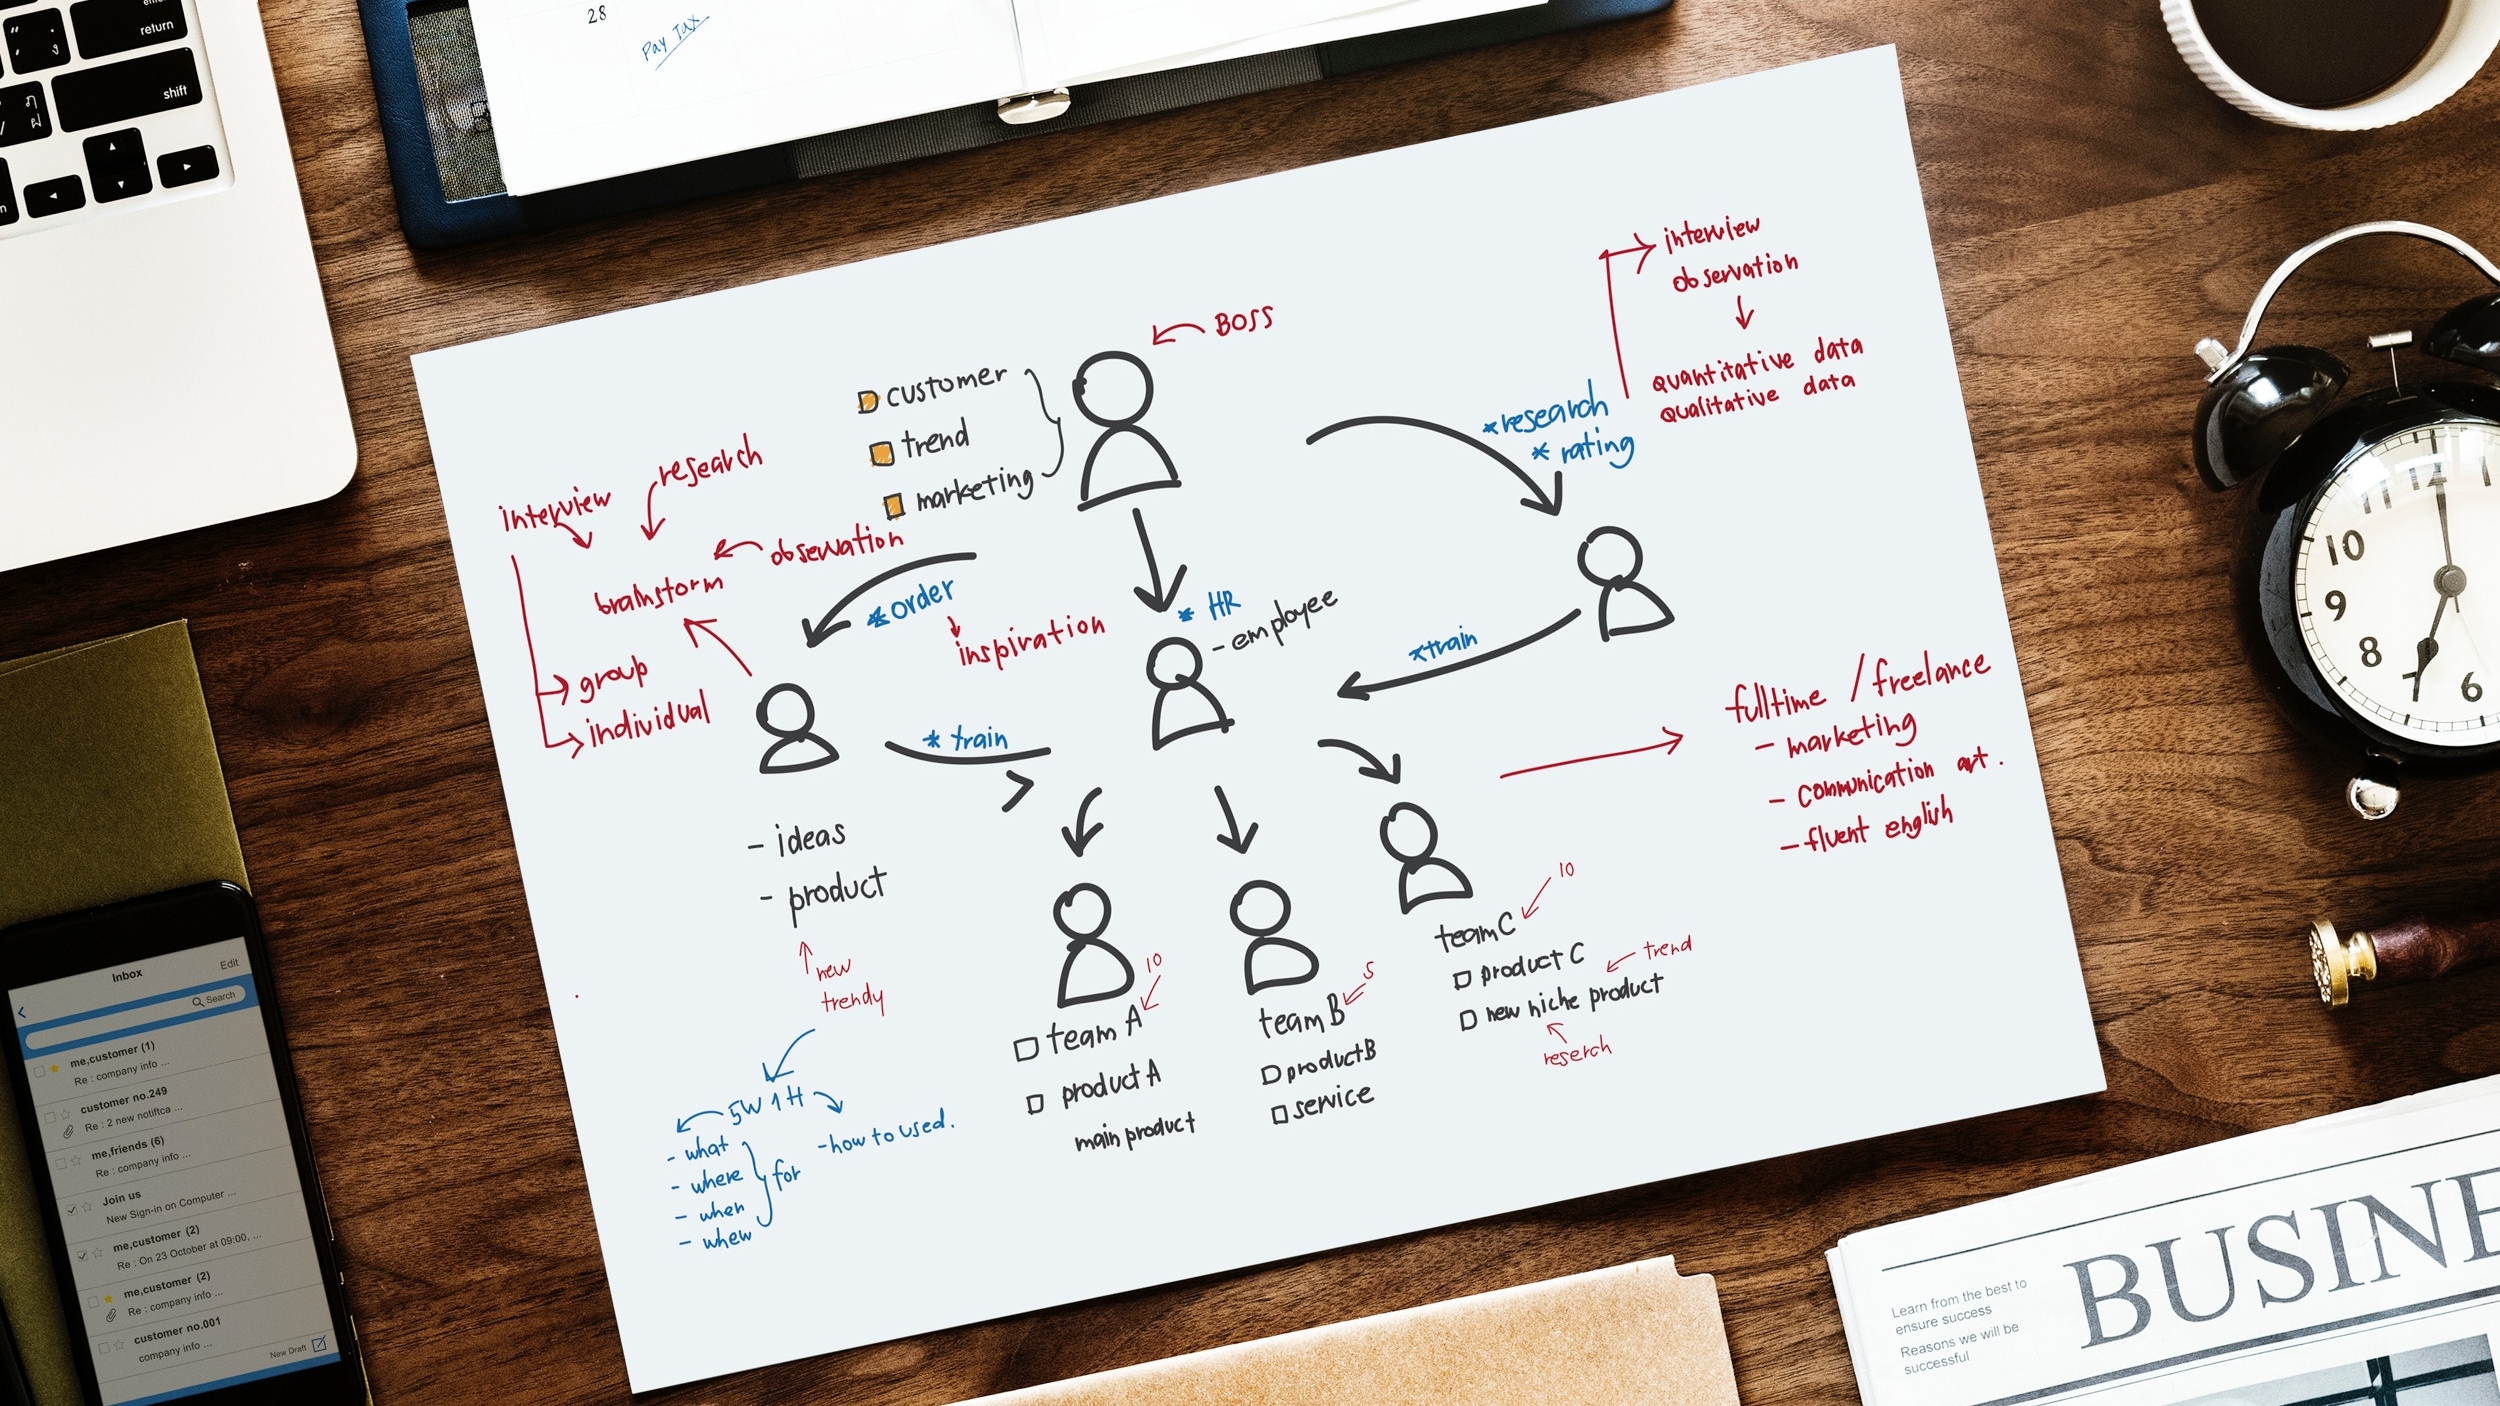 return
shift
28
Pay Tax
BOSS
customer
trend
marketing
interview
observation
quantitative data
qualitative data
*research
* rating
research
interview
observation
brainstorm
*order
inspiration
group
individual
* HR
- employee
*train
* train
fulltime / freelance
- marketing
- communication art.
- fluent english
- ideas
- product
new
trendy
5W 1H
- what
- where
- when
- whew
for
- how to used.
10
team A
product A
main product
5
team B
product B
service
10
team C
product C
trend
new niche product
reserch
10
9
8
7
6
Inbox
Edit
Search
me,customer (1)
Re : company info ...
customer no.249
Re : 2 new notiftca ...
me,friends (6)
Re : company info ...
Join us
New Sign-in on Computer ...
me,customer (2)
Re : On 23 October at 09:00, ...
me,customer (2)
Re : company info ...
customer no.001
company info ...
New Draft
Learn from the best to
ensure success
Reasons we will be
successful
BUSINE